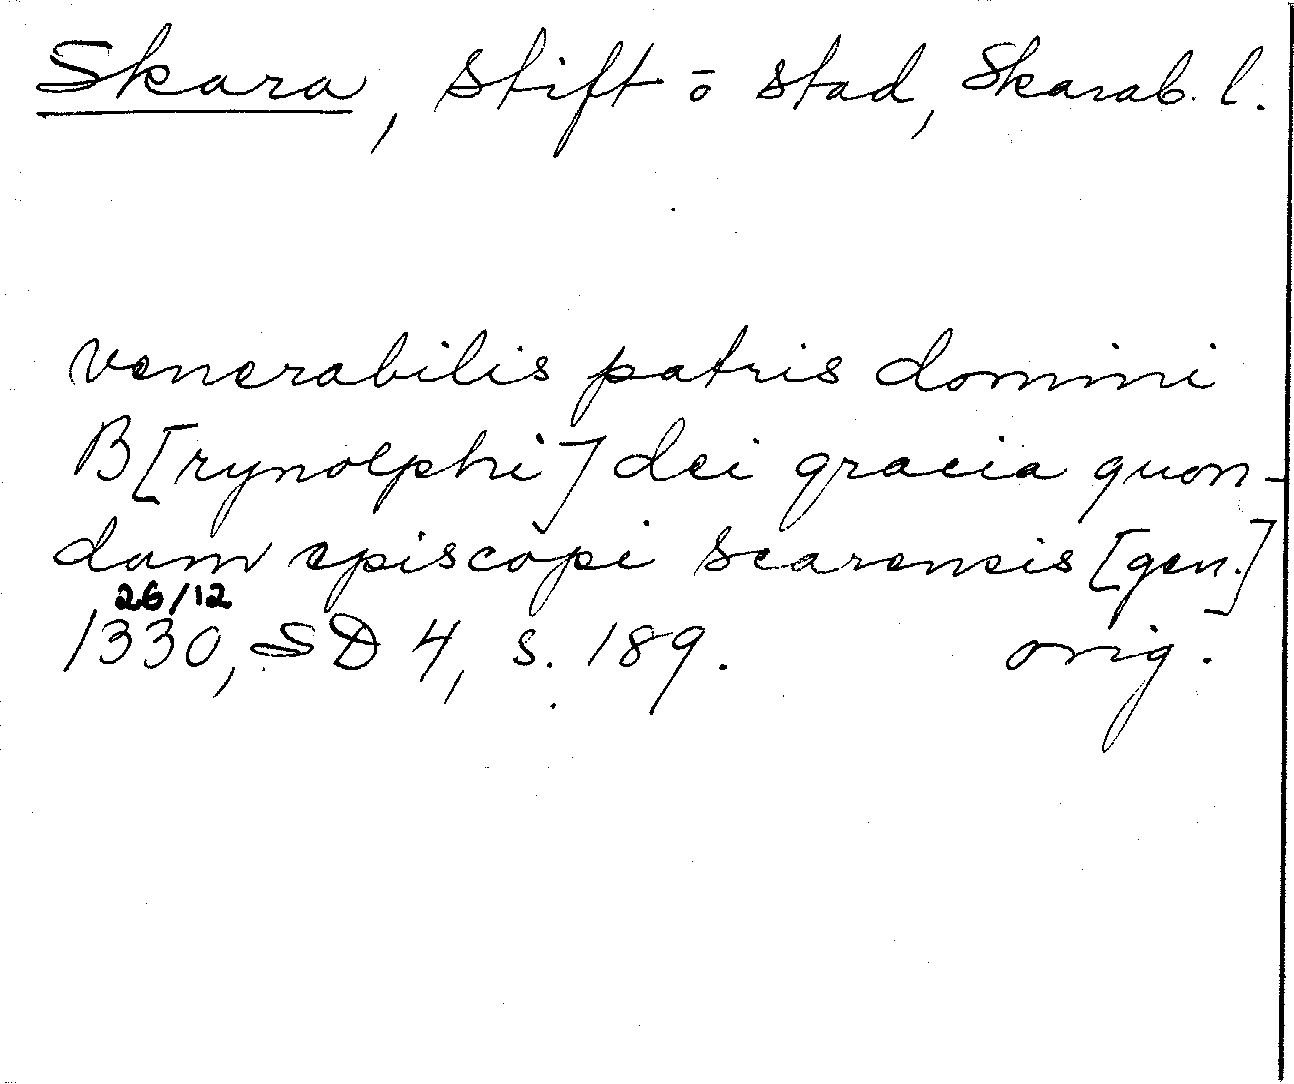 Skara, stift ō stad, Skarab. l.
venerabilis patris domini
B[rynolphi] dei gracia quon-
dam episcopi scarensis [gen.]
26/12
1330, SD 4, s. 189. orig.